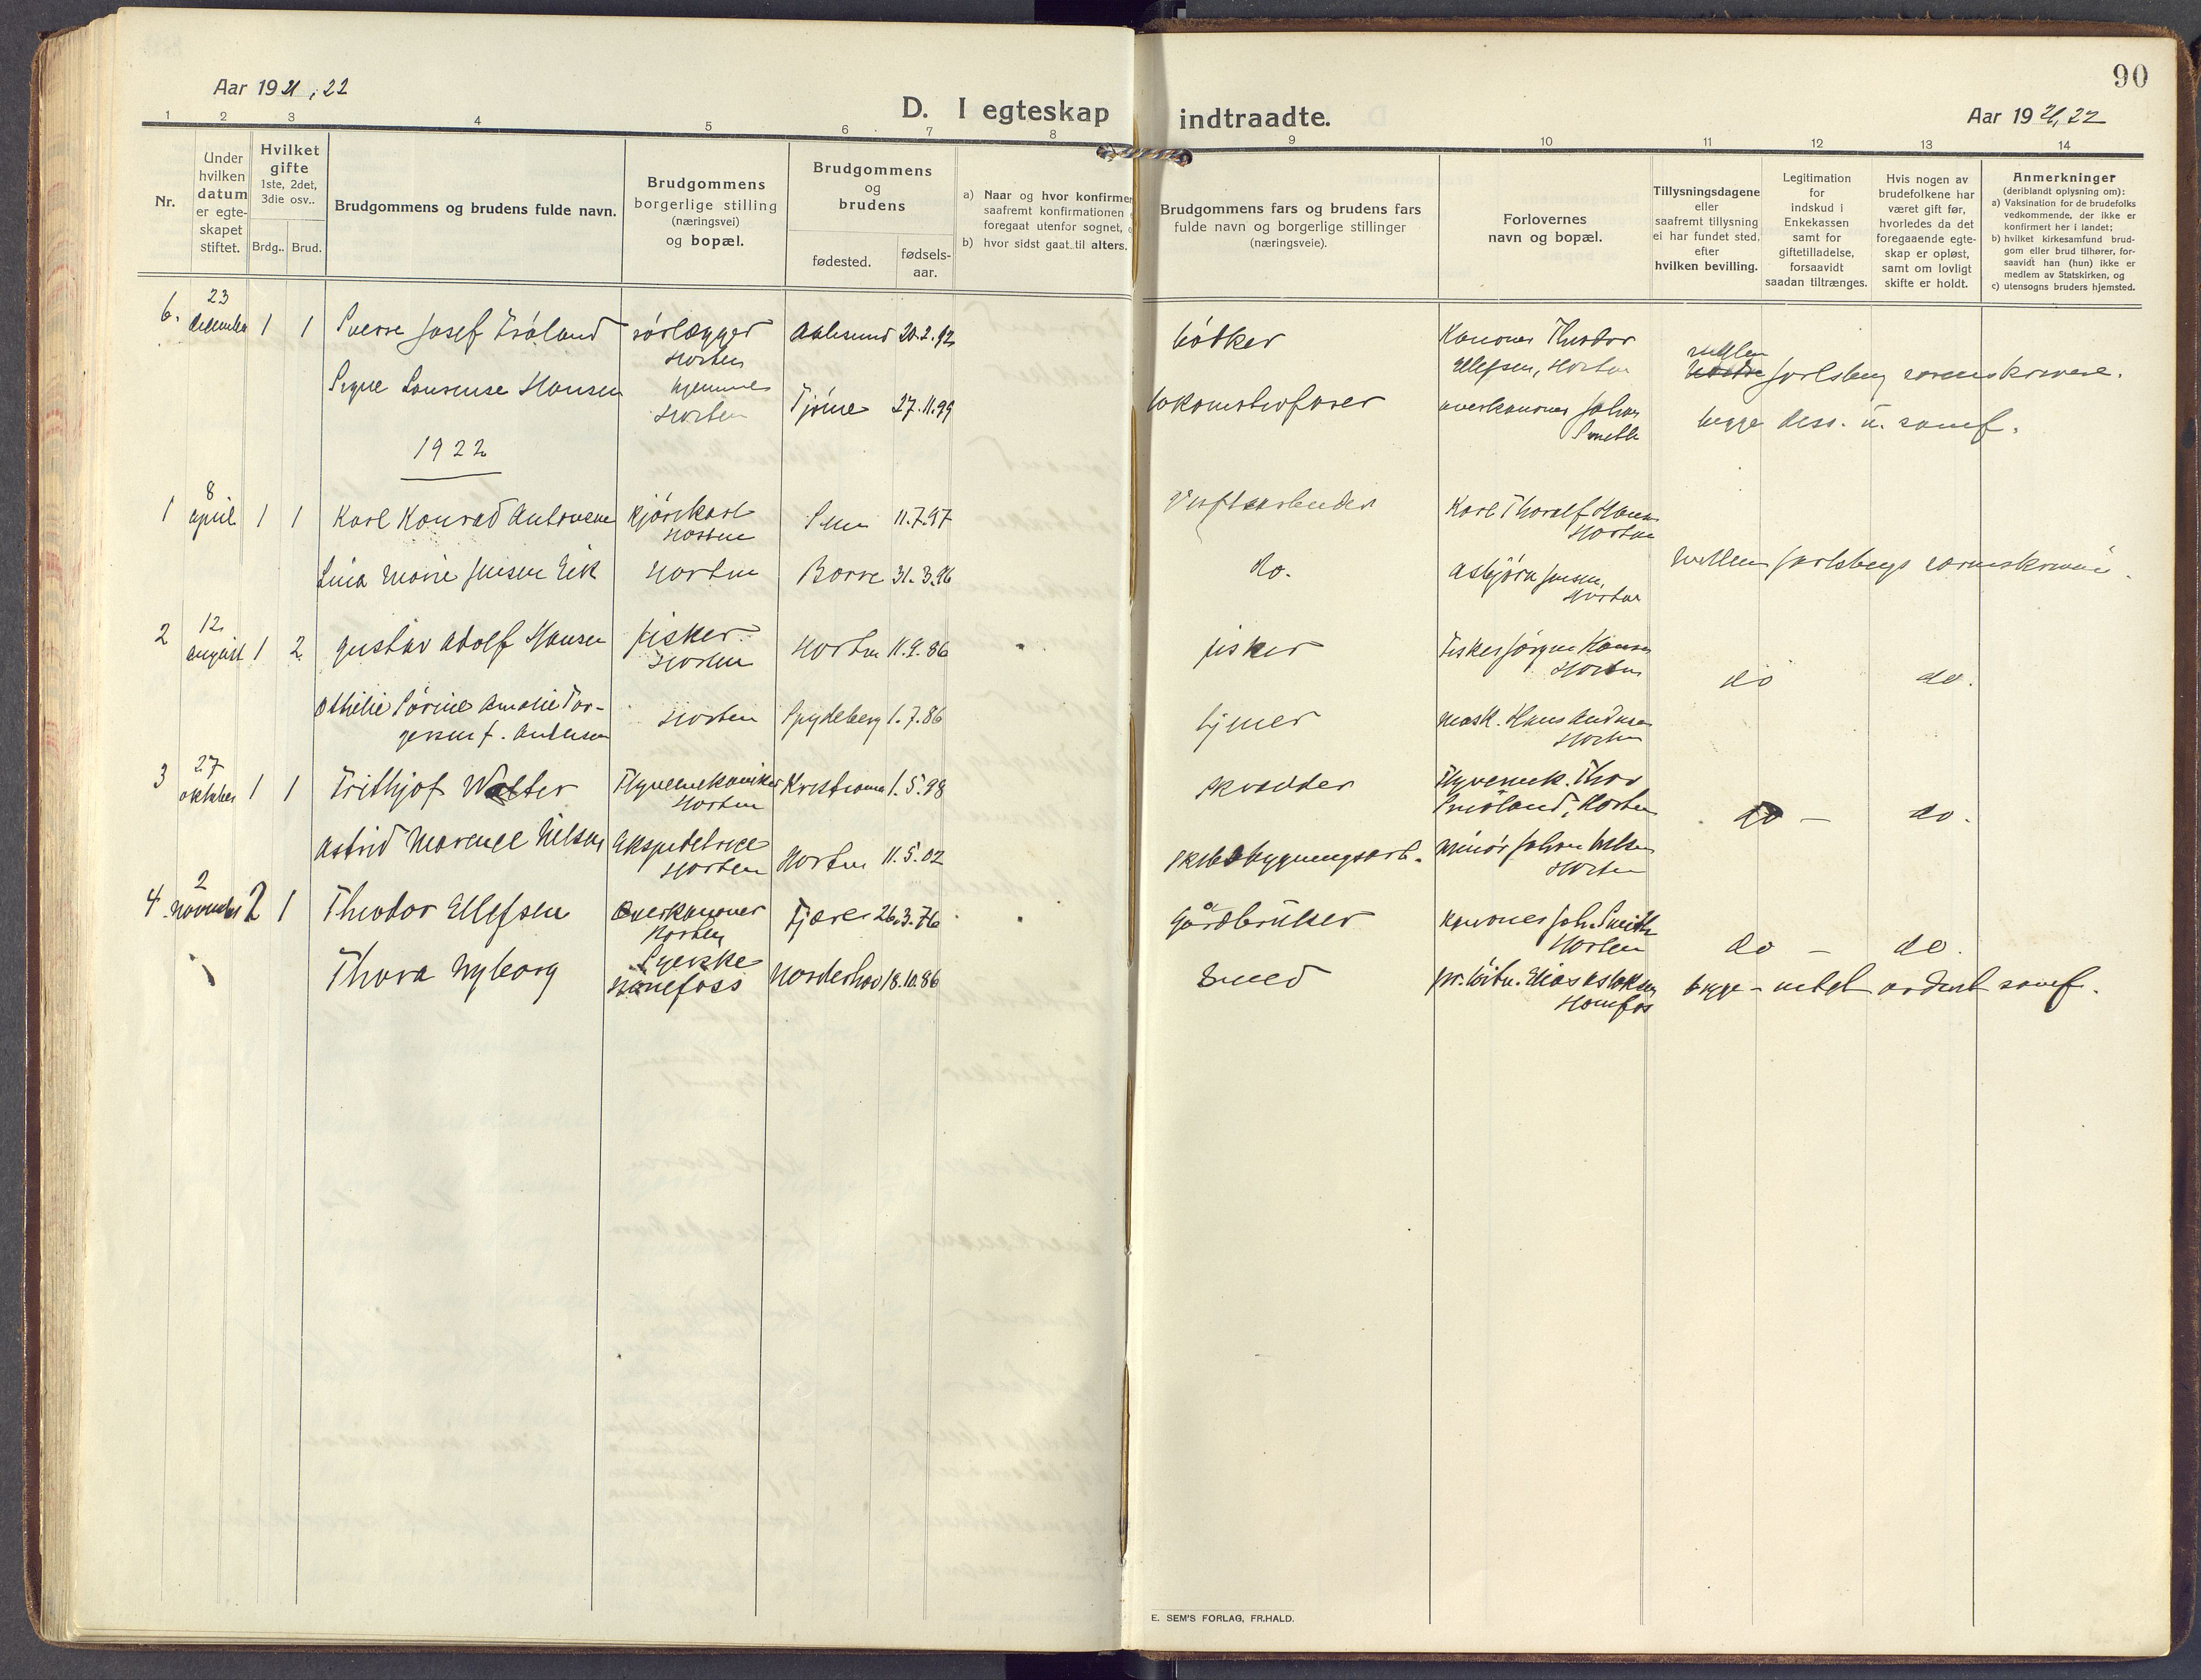 90
Aar 1921, 22
D. I egteskap indtraadte.
Aar 1921, 22
1 2 3 4 5 6 7 8 9 10 11 12 13 14
Nr.
Under
hvilken
datum
er egte-
skapet
stiftet.
Hvilket
gifte
1ste, 2det,
3die osv..
Brdg.. Brud.
Brudgommens og brudens fulde navn.
Brudgommens
borgerlige stilling
(næringsvei)
og bopæl.
Brudgommens
og
brudens
fødested.
fødsels-
aar.
a) Naar og hvor konfirmer
saafremt konfirmationen
foregaat utenfor sognet,
b) hvor sidst gaat til alters.
Brudgommens fars og brudens fars
fulde navn og borgerlige stillinger
(næringsveie).
Forlovernes
navn og bopæl.
Tillysningsdagene
eller
saafremt tillysning
ei har fundet sted,
efter
hvilken bevilling.
Legitimation
for
indskud i
Enkekassen
samt for
giftetilladelse,
forsaavidt
saadan tiltrænges.
Hvis nogen av
brudefolkene har
været gift før,
hvorledes da det
foregaaende egte-
skap er opløst,
samt om lovligt
skifte er holdt.
Anmerkninger
(deriblandt oplysning om):
a) Vaksination for de brudefolks
vedkommende, der ikke er
konfirmert her i landet;
b) hvilket kirkesamfund brud-
gom eller brud tilhører, for-
saavidt han (hun) ikke er
medlem av Statskirken, og
c) utensogns bruders hjemsted.
6. 23 december 1 1 Sverre Josef Fröland rörlægger Horten Aalesund 20.2.92 bödker Kanoner Theodor Ellefsen, Horten
Signe Laurense Hansen hjemme Horten Tjöme 27.11.99 lokomotivförer overkanoner Johan Smith
mellem Jarlsberg sorenskriveri.
begge diss. u. samf.
1922
1 8 april 1 1 Karl Konrad Antonsen kjörekarl Horten Sem 11.7.97 Verftsarbeider Karl Thoralf Hansen Horten
Lina Marie Jensen Eik Horten Borre 31.3.96 do. Asbjörn Jensen, Horten
mellem Jarlsbergs sorenskriveri.
2 12 august 1 2 Gustav Adolf Hansen fisker Horten Horten 11.9.86 fisker Fisker Jörgen Hansen Horten
do do.
Othilie Sörine Amalie Tor-
gersen f. Andersen Horten Spydeberg 1.7.86 mask. Hans Andersen Horten
3 27 oktober 1 1 Frithjof Walter Flyvemekaniker Horten Kristiania 1.5.98 skrædder Flyvemek. Thor Horten
do – do.
Astrid Marenee Nilsen Ekspeditrice Horten Horten 11.5.02 skibsbygningsarb. minör Johan Nilsen Horten
4 2 november 2 1 Theodor Ellefsen Overkanoner Horten Fjære 26.3.76 Gårdbruker kanoner Joh. Smith Horten
do – do.
Thora Nyborg Syerske Hönefoss Norderhov 18.10.86 Smed Elias Aslaksen Hönefos
begge – utenf. ordnet samf.
E. SEM'S FORLAG, FR.HALD.